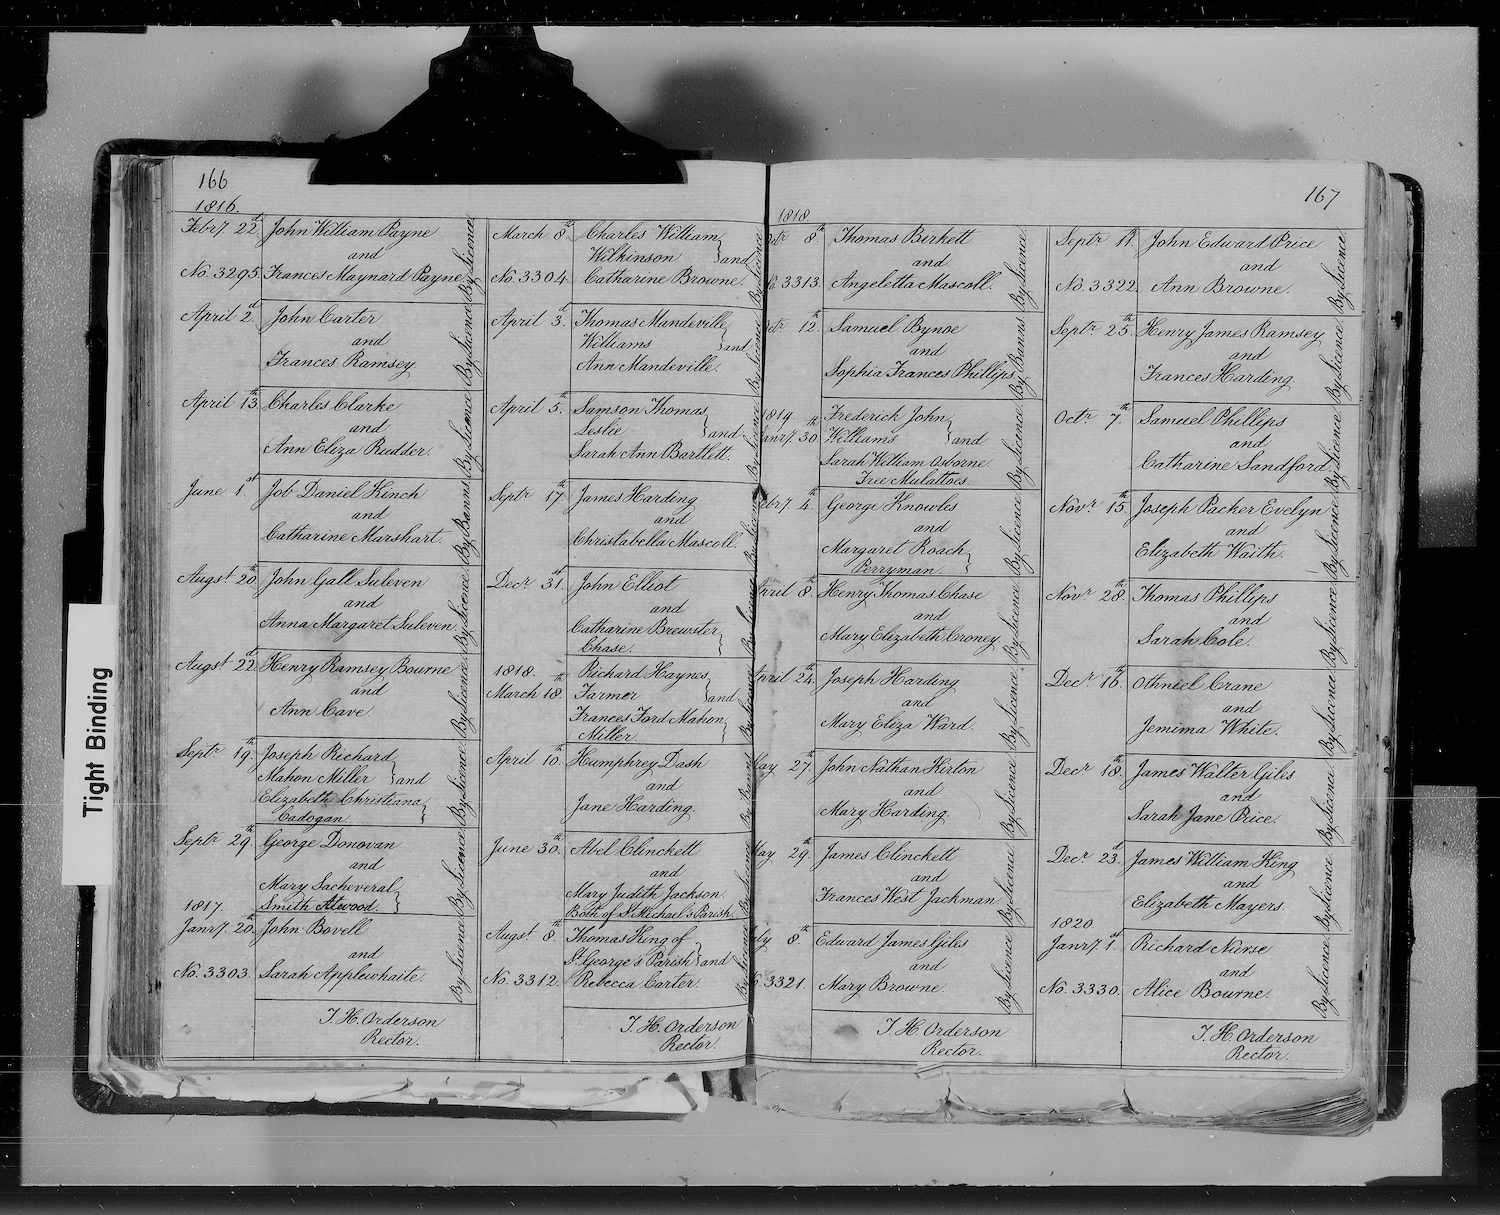 166
1816.
Febry 22d John William Payne
and
No. 3295 Frances Maynard Payne
By Licence
April 2d John Carter
and
Frances Ramsey
By Licence
April 13th Charles Clarke
and
Ann Eliza Rudder.
By Licence
June 1st Job Daniel Kinch
and
Catharine Marshart.
By Banns
Augst 20th John Gall Suleven
and
Anna Margaret Suleven.
By Licence
Augst 22d Henry Ramsey Bourne
and
Ann Cave
By Licence
Septr 19th Joseph Richard
Mahon Miller } and
Elizabeth Christiana
Cadogan }
By Licence
Septr 29th George Donovan
and
Mary Sacheveral
Smith Atwood. }
By Licence
1817.
Janry 20th John Bovell
and
No. 3303. Sarah Applewhaite.
By Licence
T. H. Orderson
Rector.
March 8th Charles William
Wilkinson } and
No. 3304. Catharine Browne.
By Licence
April 3d Thomas Mandeville
Williams } and
Ann Mandeville.
By Licence
April 5th Samson Thomas
Leslie } and
Sarah Ann Bartlett.
By Licence
Septr 17th James Harding
and
Christabella Mascoll.
By Licence
Decr 31st John Elliot
and
Catharine Brewster
Chase. }
By Licence
1818.
March 18th Richard Haynes
Farmer } and
Frances Ford Mahon
Miller. }
By Licence
April 10th Humphrey Dash
and
Jane Harding.
By Banns
June 30th Abel Clinckett
and
Mary Judith Jackson
Both of St Michael's Parish
By Licence
Augst 8th Thomas King of
St George's Parish } and
No. 3312. Rebecca Carter.
By Licence
T. H. Orderson
Rector.
167
1818.
8th Thomas Birkett
and
3313. Angeletta Mascoll.
By Licence
12th Samuel Bynoe
and
Sophia Frances Phillips
By Banns
1819
Janry 30th Frederick John
Williams } and
Sarah William Osborne
Free Mulattoes
By Licence
Febry 4th George Knowles
and
Margaret Roach
Perryman. }
By Licence
April 8th Henry Thomas Chase
and
Mary Elizabeth Croney
By Licence
April 24th Joseph Harding
and
Mary Eliza Ward.
By Licence
May 27th John Nathan Kirton
and
Mary Harding
By Licence
May 29th James Clinckett
and
Frances West Jackman
By Licence
8th Edward James Giles
and
3321. Mary Browne.
By Licence
T. H. Orderson
Rector.
Septr 11th John Edward Price
and
No. 3322 Ann Browne.
By Licence
Septr 25th Henry James Ramsey
and
Frances Harding
By Licence
Octr 7th Samuel Phillips
and
Catharine Sandford
By Licence
Novr 15th Joseph Packer Evelyn
and
Elizabeth Waith.
By Licence
Novr 28th Thomas Phillips
and
Sarah Cole.
By Licence
Decr 16th Othniel Crane
and
Jemima White.
By Licence
Decr 18th James Walter Giles
and
Sarah Jane Price.
By Licence
Decr 23d James William King
and
Elizabeth Mayers.
By Licence
1820
Janry 1st Richard Nurse
and
No. 3330. Alice Bourne.
By Licence
T. H. Orderson
Rector.
Tight Binding